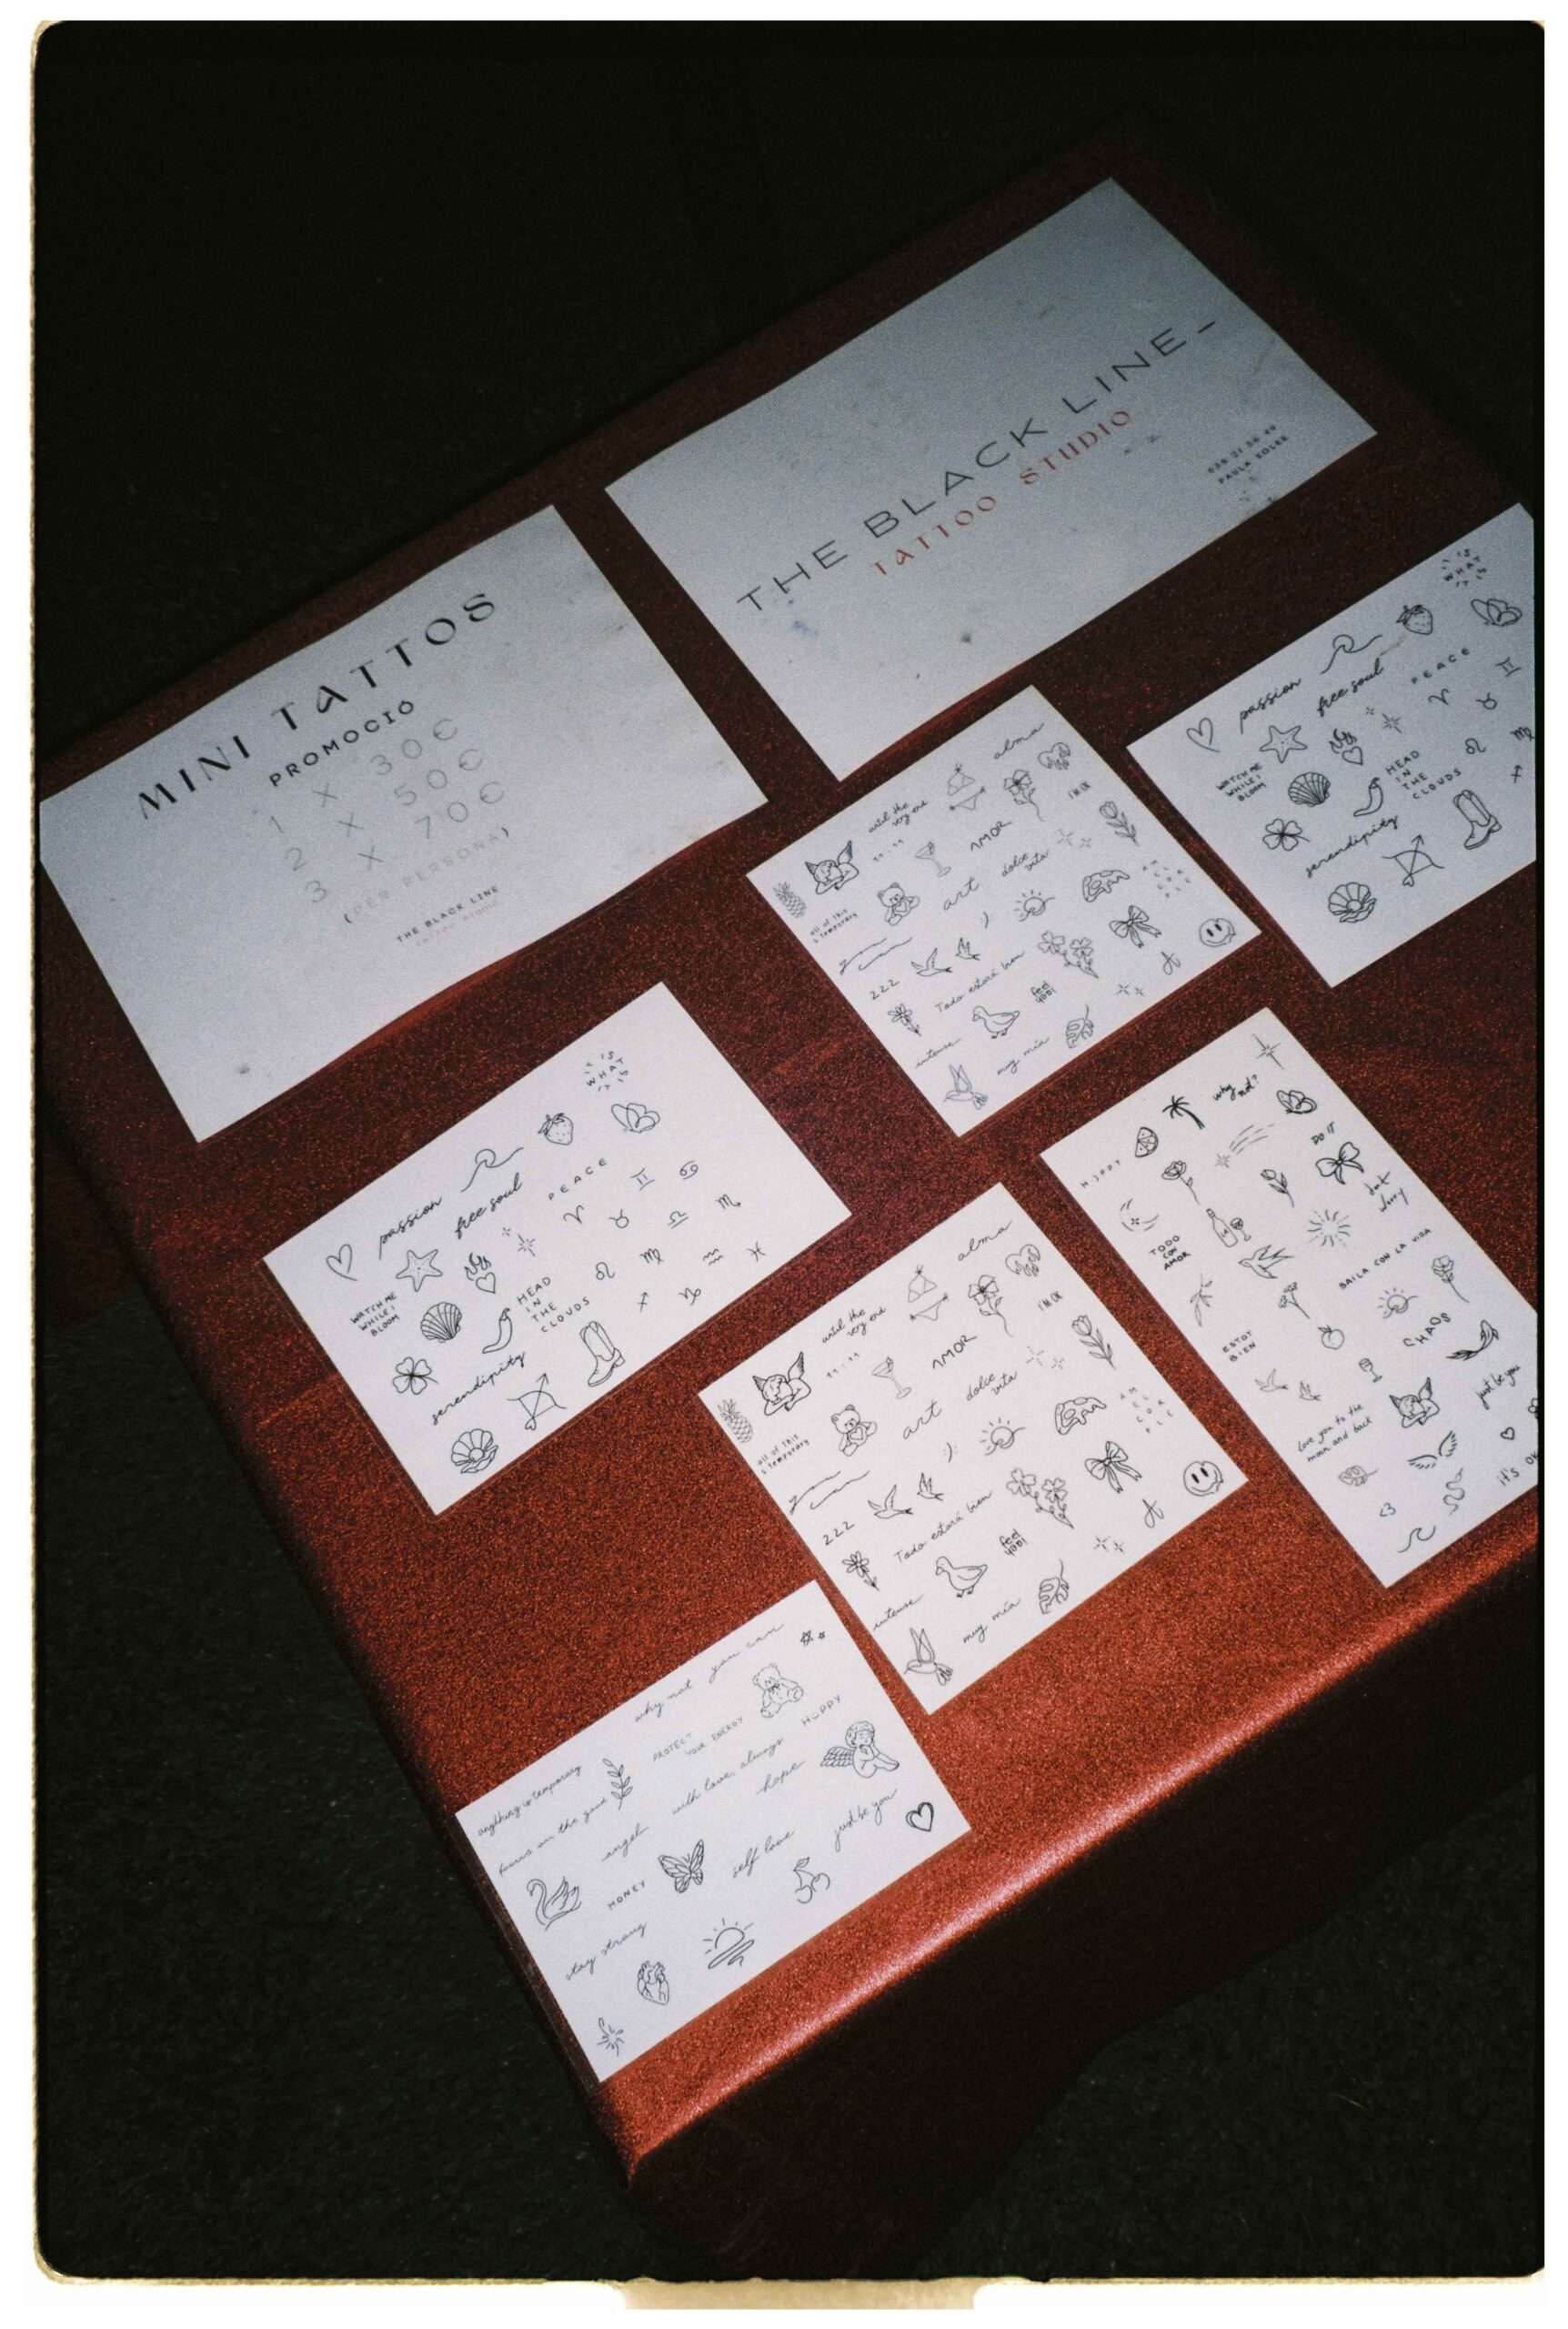 THE BLACK LINE-
TATTOO STUDIO
MINI TATTOS
PROMOCIÓ
1 X 30€
2 X 50€
3 X 70€
(PER PERSONA)
THE BLACK LINE
TATTOO STUDIO
IS
WHAT
IT
passion
free soul
PEACE
WATCH ME
WHILE I
BLOOM
HEAD
IN
THE
CLOUDS
serendipity
alma
until the
very end
I'M OK
11:11
AMOR
dolce
vita
art
all of this
is temporary
222
Todo estará bien
feel
good
intense
muy mía
IS
WHAT
IT
passion
free soul
PEACE
WATCH ME
WHILE I
BLOOM
HEAD
IN
THE
CLOUDS
serendipity
why
not?
HAPPY
DO IT
don't
worry
TODO
CON
AMOR
BAILA CON LA VIDA
CHAOS
ESTOY
BIEN
just be you
love you to the
moon and back
it's OK
alma
until the
very end
I'M OK
11:11
AMOR
dolce
vita
art
all of this
is temporary
222
Todo estará bien
feel
good
intense
muy mía
why not
you can
PROTECT
YOUR ENERGY
HAPPY
anything is temporary
focus on the good
with love, always
hope
angel
just be you
HONEY
self love
stay strong